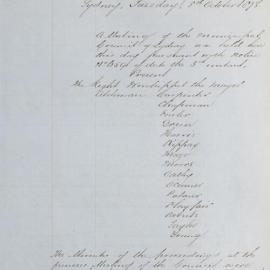 Sydney, Tuesday 8th October 1878
A Meeting of the Municipal
Council of Sydney was held here
this day pursuant to Notice
of date the 3rd instant.
Present
The Right Worshipful the Mayor
Aldermen
Chapman
Green
Harris
Kippax
Meeks
Moore
Oatley
Palmer
Playfair
Roberts
Taylor
Young
The Minutes of the proceedings at the
previous Meeting of the Council were